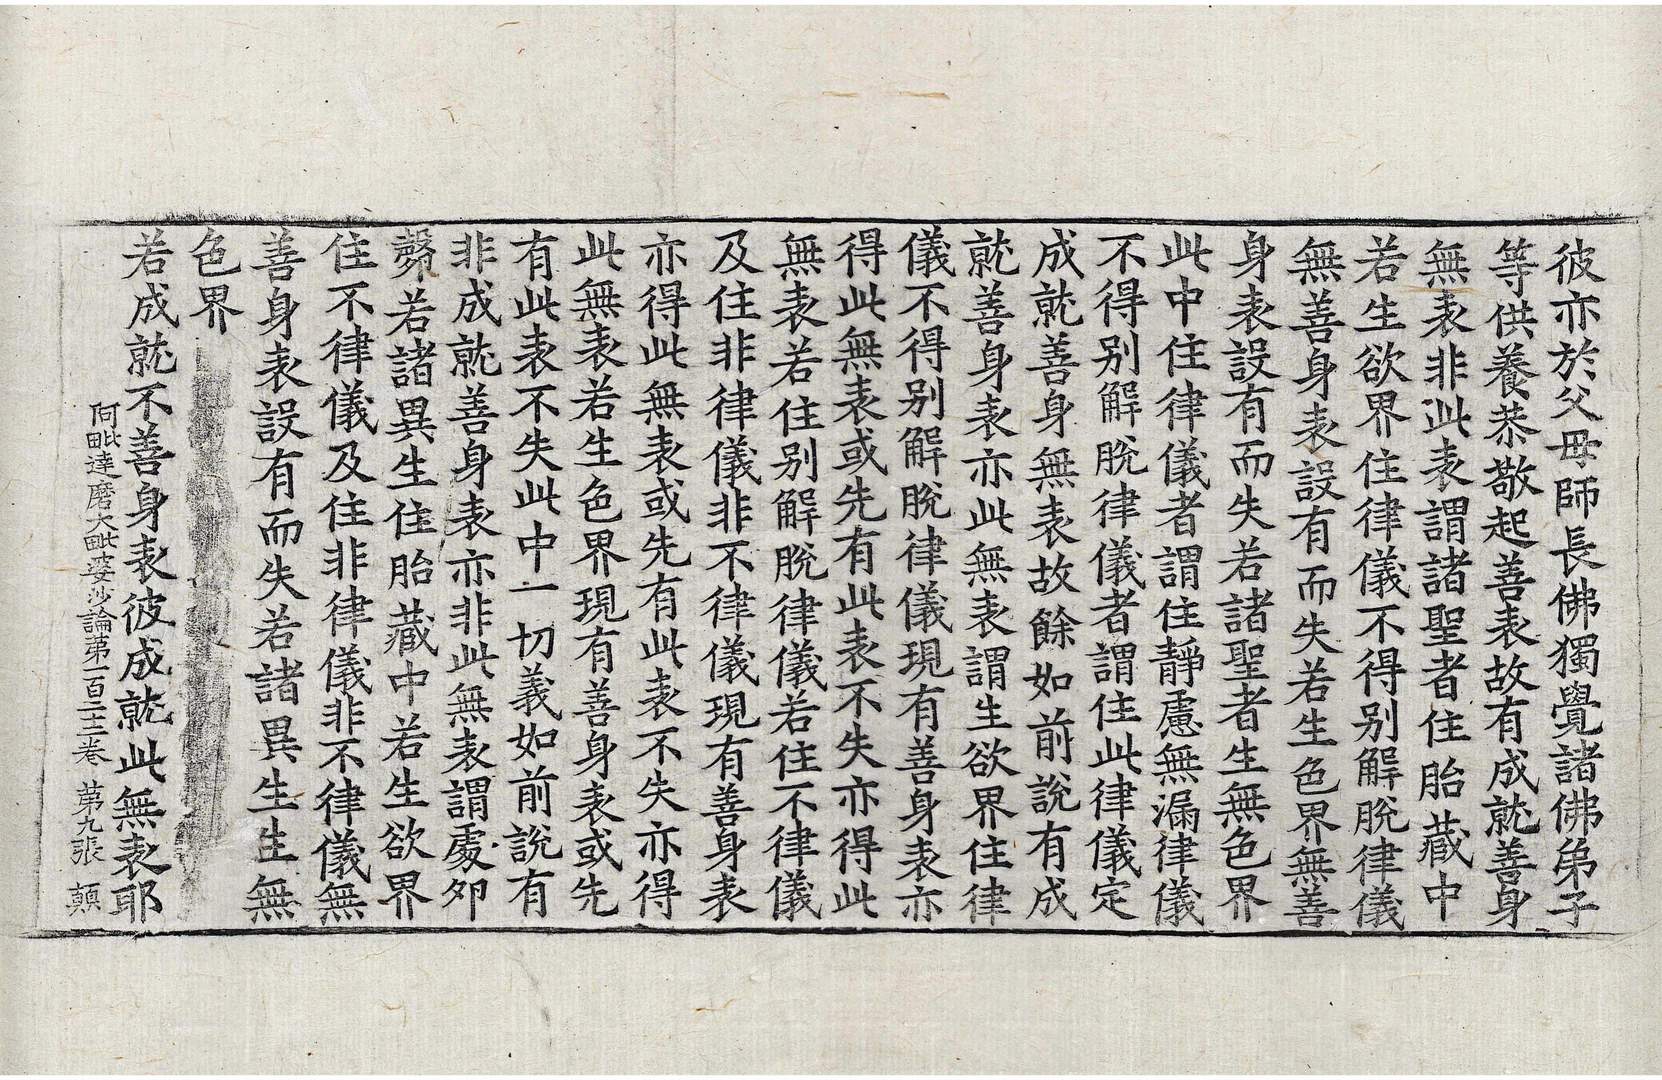 彼亦於父母師長佛獨覺諸佛弟子
等供養恭敬起善表故有成就善身
無表非此表謂諸聖者住胎藏中
若生欲界住律儀不得别解脫律儀
無善身表設有而失若生色界無善
身表設有而失若諸聖者生無色界
此中住律儀者謂住靜慮無漏律儀
不得别解脫律儀者謂住此律儀定
成就善身無表故餘如前說有成
就善身表亦此無表謂生欲界住律
儀不得别解脫律儀現有善身表亦
得此無表或先有此表不失亦得此
無表若住别解脫律儀若住不律儀
及住非律儀非不律儀現有善身表
亦得此無表或先有此表不失亦得
此無表若生色界現有善身表或先
有此表不失此中一切義如前說有
非成就善身表亦非此無表謂處夘
㲉若諸異生住胎藏中若生欲界
住不律儀及住非律儀非不律儀無
善身表設有而失若諸異生生無
色界
若成就不善身表彼成就此無表耶
阿毗達磨大毗婆沙論第一百二十二卷 第九張 顛